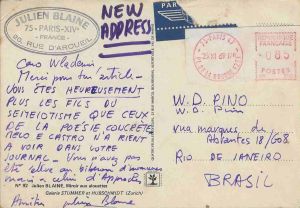 JULIEN BLAINE
75 - PARIS - XIVe
- FRANCE -
90. RUE D'ARCUEIL
NEW
ADDRESS
PARIS
REPUBLIQUE
FRANCAISE
POSTES
Caro Wlademir
Merci pour ton article -
VOUS ÊTES HEUREUSEMENT
PLUS LES FILS DU
QUE CEUX
DE LA POESIE CONCRÈTE
MELO E CASTRO N'A RIEN
A VOIR DANS VOTRE
JOURNAL - Vous n'avez pas
été
mais celui d'Approches
Amitiés Julien Blaine
W. D. PINO
W. D. Pino
via marques de
Abrantes 18/608
RIO DE JANEIRO
BRASIL
N° 82 Julien BLAINE, Miroir aux alouettes
Galerie STUMMER et HUBSCHMIDT (Zurich)